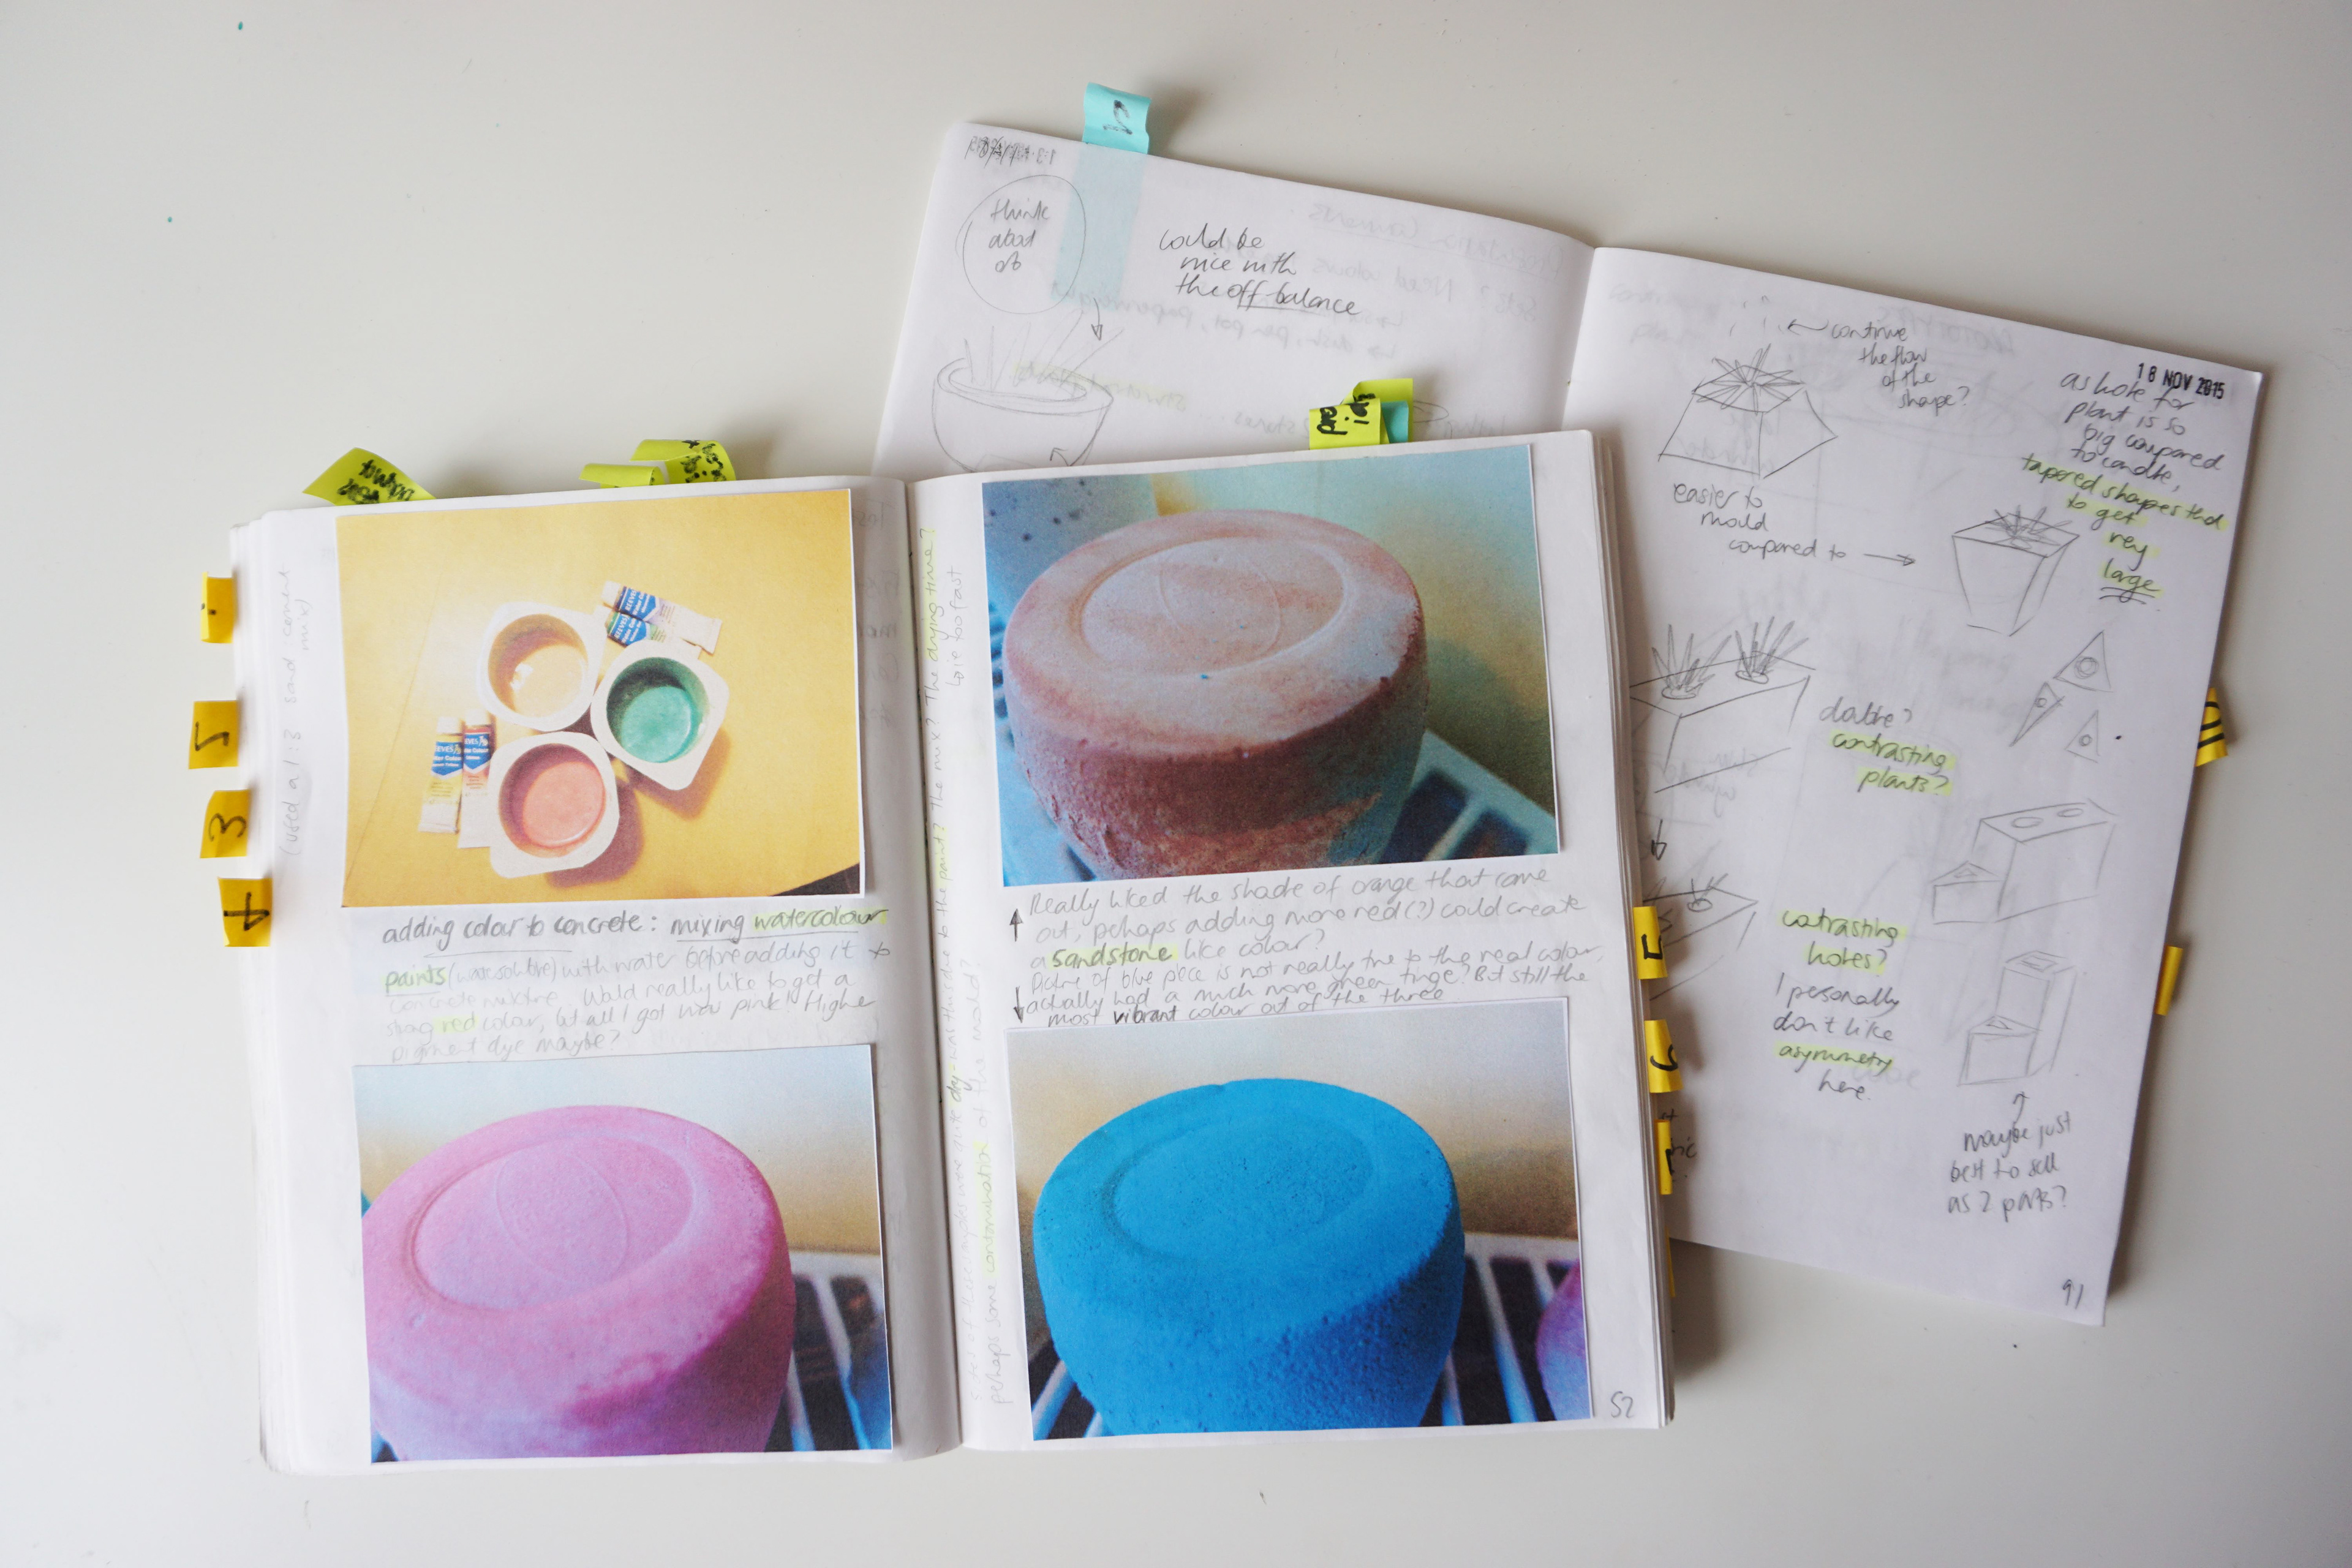 think
about
could be
nice with
the off balance
continue
the flow
of the
shape?
18 NOV 2015
as hole for
plant is so
big compared
to candle,
tapered shapes
to get
very
large
easier to
mould
compared to
contrasting
plants?
contrasting
holes?
I personally
don't like
asymmetry
here.
maybe just
best to sell
as 2 parts?
91
5
3
4
6
(used a 1:3 sand cement
mix)
adding colour to concrete: mixing watercolour
paints (water soluble) with water before adding it to
concrete mixture. Would really like to get a
strong red colour, but all I got was pink! Higher
pigment dye maybe?
dry - was this due to the paint? The mix? The drying time?
too fast
perhaps some contamination of the mould?
Really liked the shade of orange that came
out, perhaps adding more red(?) could create
a sandstone like colour?
Picture of blue piece is not really true to the real colour,
actually had a much more green tinge? But still the
most vibrant colour out of the three
52